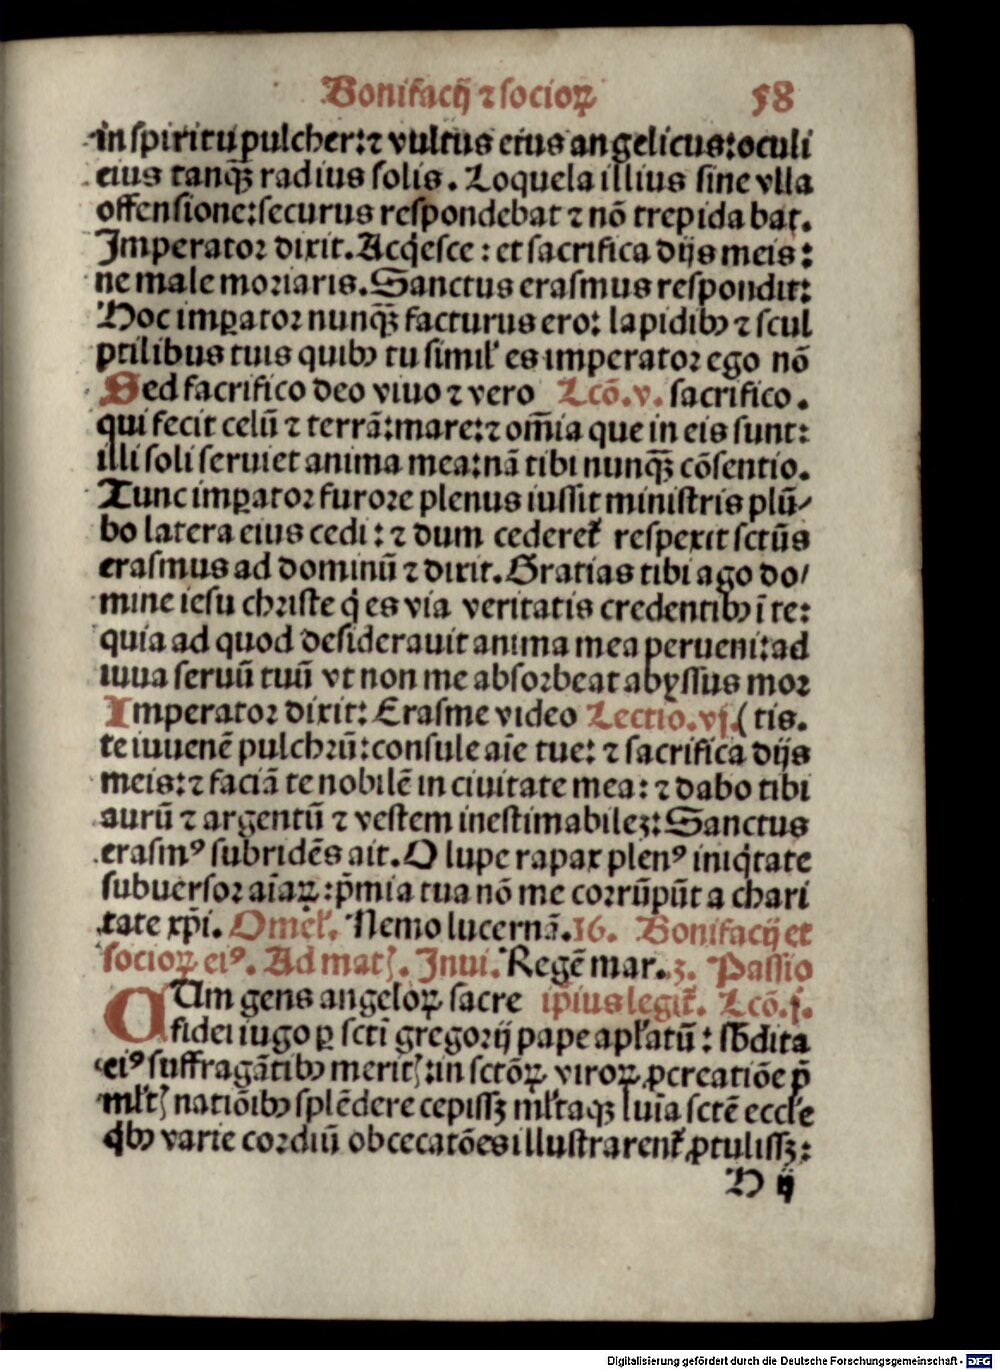 Bonifacij ⁊ socioꝝ 58
in spiritu pulcher:⁊ vultus eius angelicus:oculi
eius tanqꝫ radius solis. Loquela illius sine vlla
offensione:securus respondebat ⁊ nō trepidabat.
Imperator dixit. Acq̇esce: et sacrifica dijs meis:
ne male moriaris. Sanctus erasmus respondit:
Hoc imꝑator nunqꝫ facturus ero: lapidibꝰ ⁊ scul
ptilibus tuis quibꝰ tu simil' es imperator ego nō
Sed sacrifico deo viuo ⁊ vero Lcō.v. sacrifico.
qui fecit celū ⁊ terrā:mare:⁊ om̄ia que in eis sunt:
illi soli seruiet anima mea:nā tibi nunqꝫ cōsentio.
Tunc imꝑator furore plenus iussit ministris plū/
bo latera eius cedi: ⁊ dum cederet' respexit sctūs
erasmus ad dominū ⁊ dixit. Gratias tibi ago do/
mine iesu christe q̇ es via veritatis credentibꝰ ī te:
quia ad quod desiderauit anima mea perueni:ad
iuua seruū tuū vt non me absorbeat abyssus mor
Imperator dixit: Erasme video Lectio.vj. (tis.
te iuuenē pulchrū:consule aīe tue: ⁊ sacrifica dijs
meis:⁊ faciā te nobilē in ciuitate mea: ⁊ dabo tibi
aurū ⁊ argentū ⁊ vestem inestimabileꝫ: Sanctus
erasmꝰ subridēs ait. O lupe rapax plenꝰ iniq̇tate
subuersor aīaꝝ:p̄mia tua nō me corrūpūt a chari
tate xp̄i. Omel'. Nemo lucernā.16. Bonifacij et
socioꝝ eiꝰ. Ad mat. Inui. Regē mar.3. Passio
QUm gens angeloꝝ sacre ip̄ius legit'. Lcō.j.
fidei iugo ꝑ sctī gregorij pape apl'atū: sb̄dita
eiꝰ suffragātibꝰ merit:in sctōꝝ viroꝝ ꝓcreatiōe p̄
ml't natiōibꝰ splēdere cepissꝫ ml'taqꝫ luīa sctē eccl'e
q̇bꝰ varie cordiū obcecatōes illustrarent' ꝓtulissꝫ:
H ij
Digitalisierung gefördert durch die Deutsche Forschungsgemeinschaft - DFG